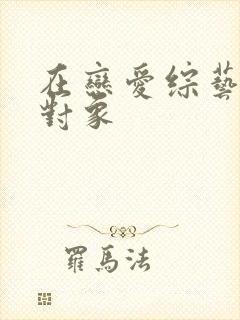 在戀愛綜藝
對象
羅馬法